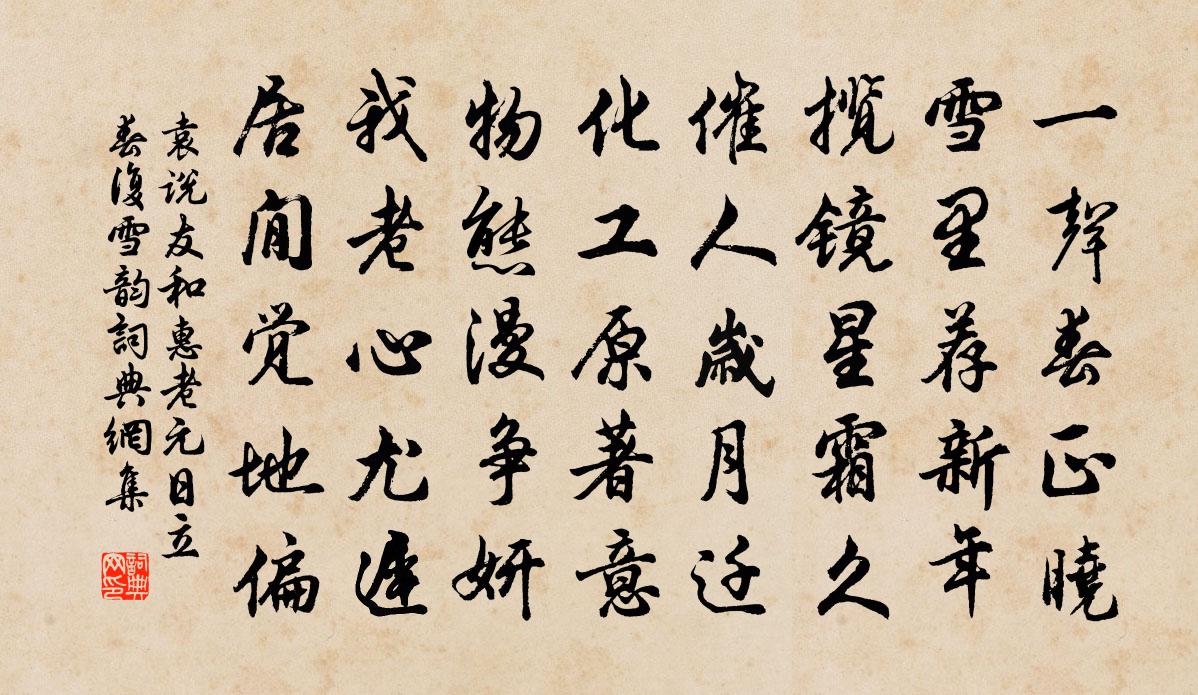 一聲春正曉
雪里荐新年
揽镜星霜久
催人歲月迁
化工原著意
物態漫争妍
我老心尤遲
居閒觉地偏
袁说友和惠老元日立
春復雪韵詞典網集
詞典
网印